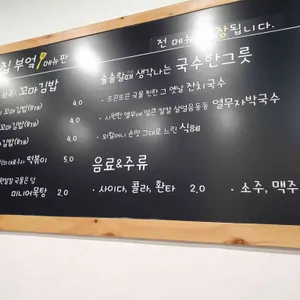 집 부엌 메뉴판
전 메뉴 장됩니다.
꼬마김밥
꼬마김밥 4.0
꼬마김밥 4.0
김밥 4.0
떡볶이 5.0
국물은 덤
미니어묵탕 2.0
출출할때 생각나는 국수한그릇
· 뜨끈뜨끈 국물 진한 그 옛날 잔치국수
· 시원한 열무에 얼음 동동 열무자박국수
· 외할머니 손맛 그대로 느린 식혜
음료&주류
· 사이다, 콜라, 환타 2.0
· 소주, 맥주